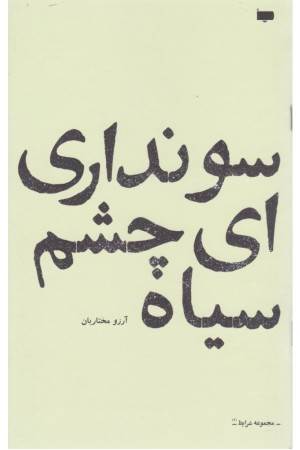 سو نداری
ای چشم
سیاه
آرزو مختاریان
ـ مجموعه شرایط ـ